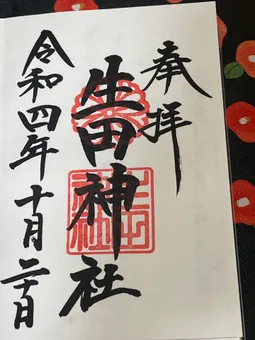 奉拝
生田神社
令和四年十月二十日